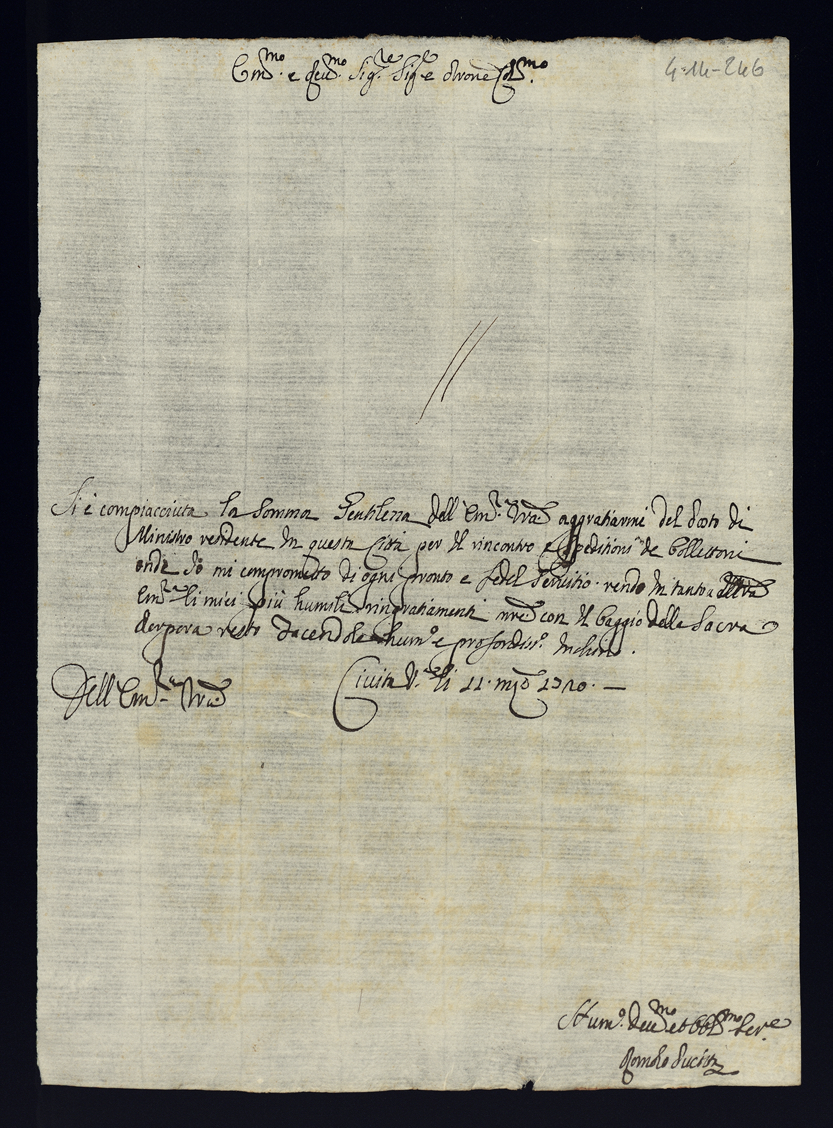 Em.mo e Reu.mo Sig.re Sig.re e Prone Col.mo
4-14-246
Si è compiacciuta la Somma Gentilezza dell'Em.za Vra aggratiarmi del Posto di
Ministro residente in questa Città per il rincontro e speditioni de Bollettoni
onde Io mi comprometto di ogni pronto e fedel Servitio. rendo in tanto a
Em.za li miei più humili ringratiamenti, con il baggio della Sacra
Porpora resto facendole hum.o e profondiss.o inchino.
Dell'Em.za Vra
Civita V.a li 11. 1710. —
Hum.o Deu.mo et Obb.mo Ser.e
Romolo